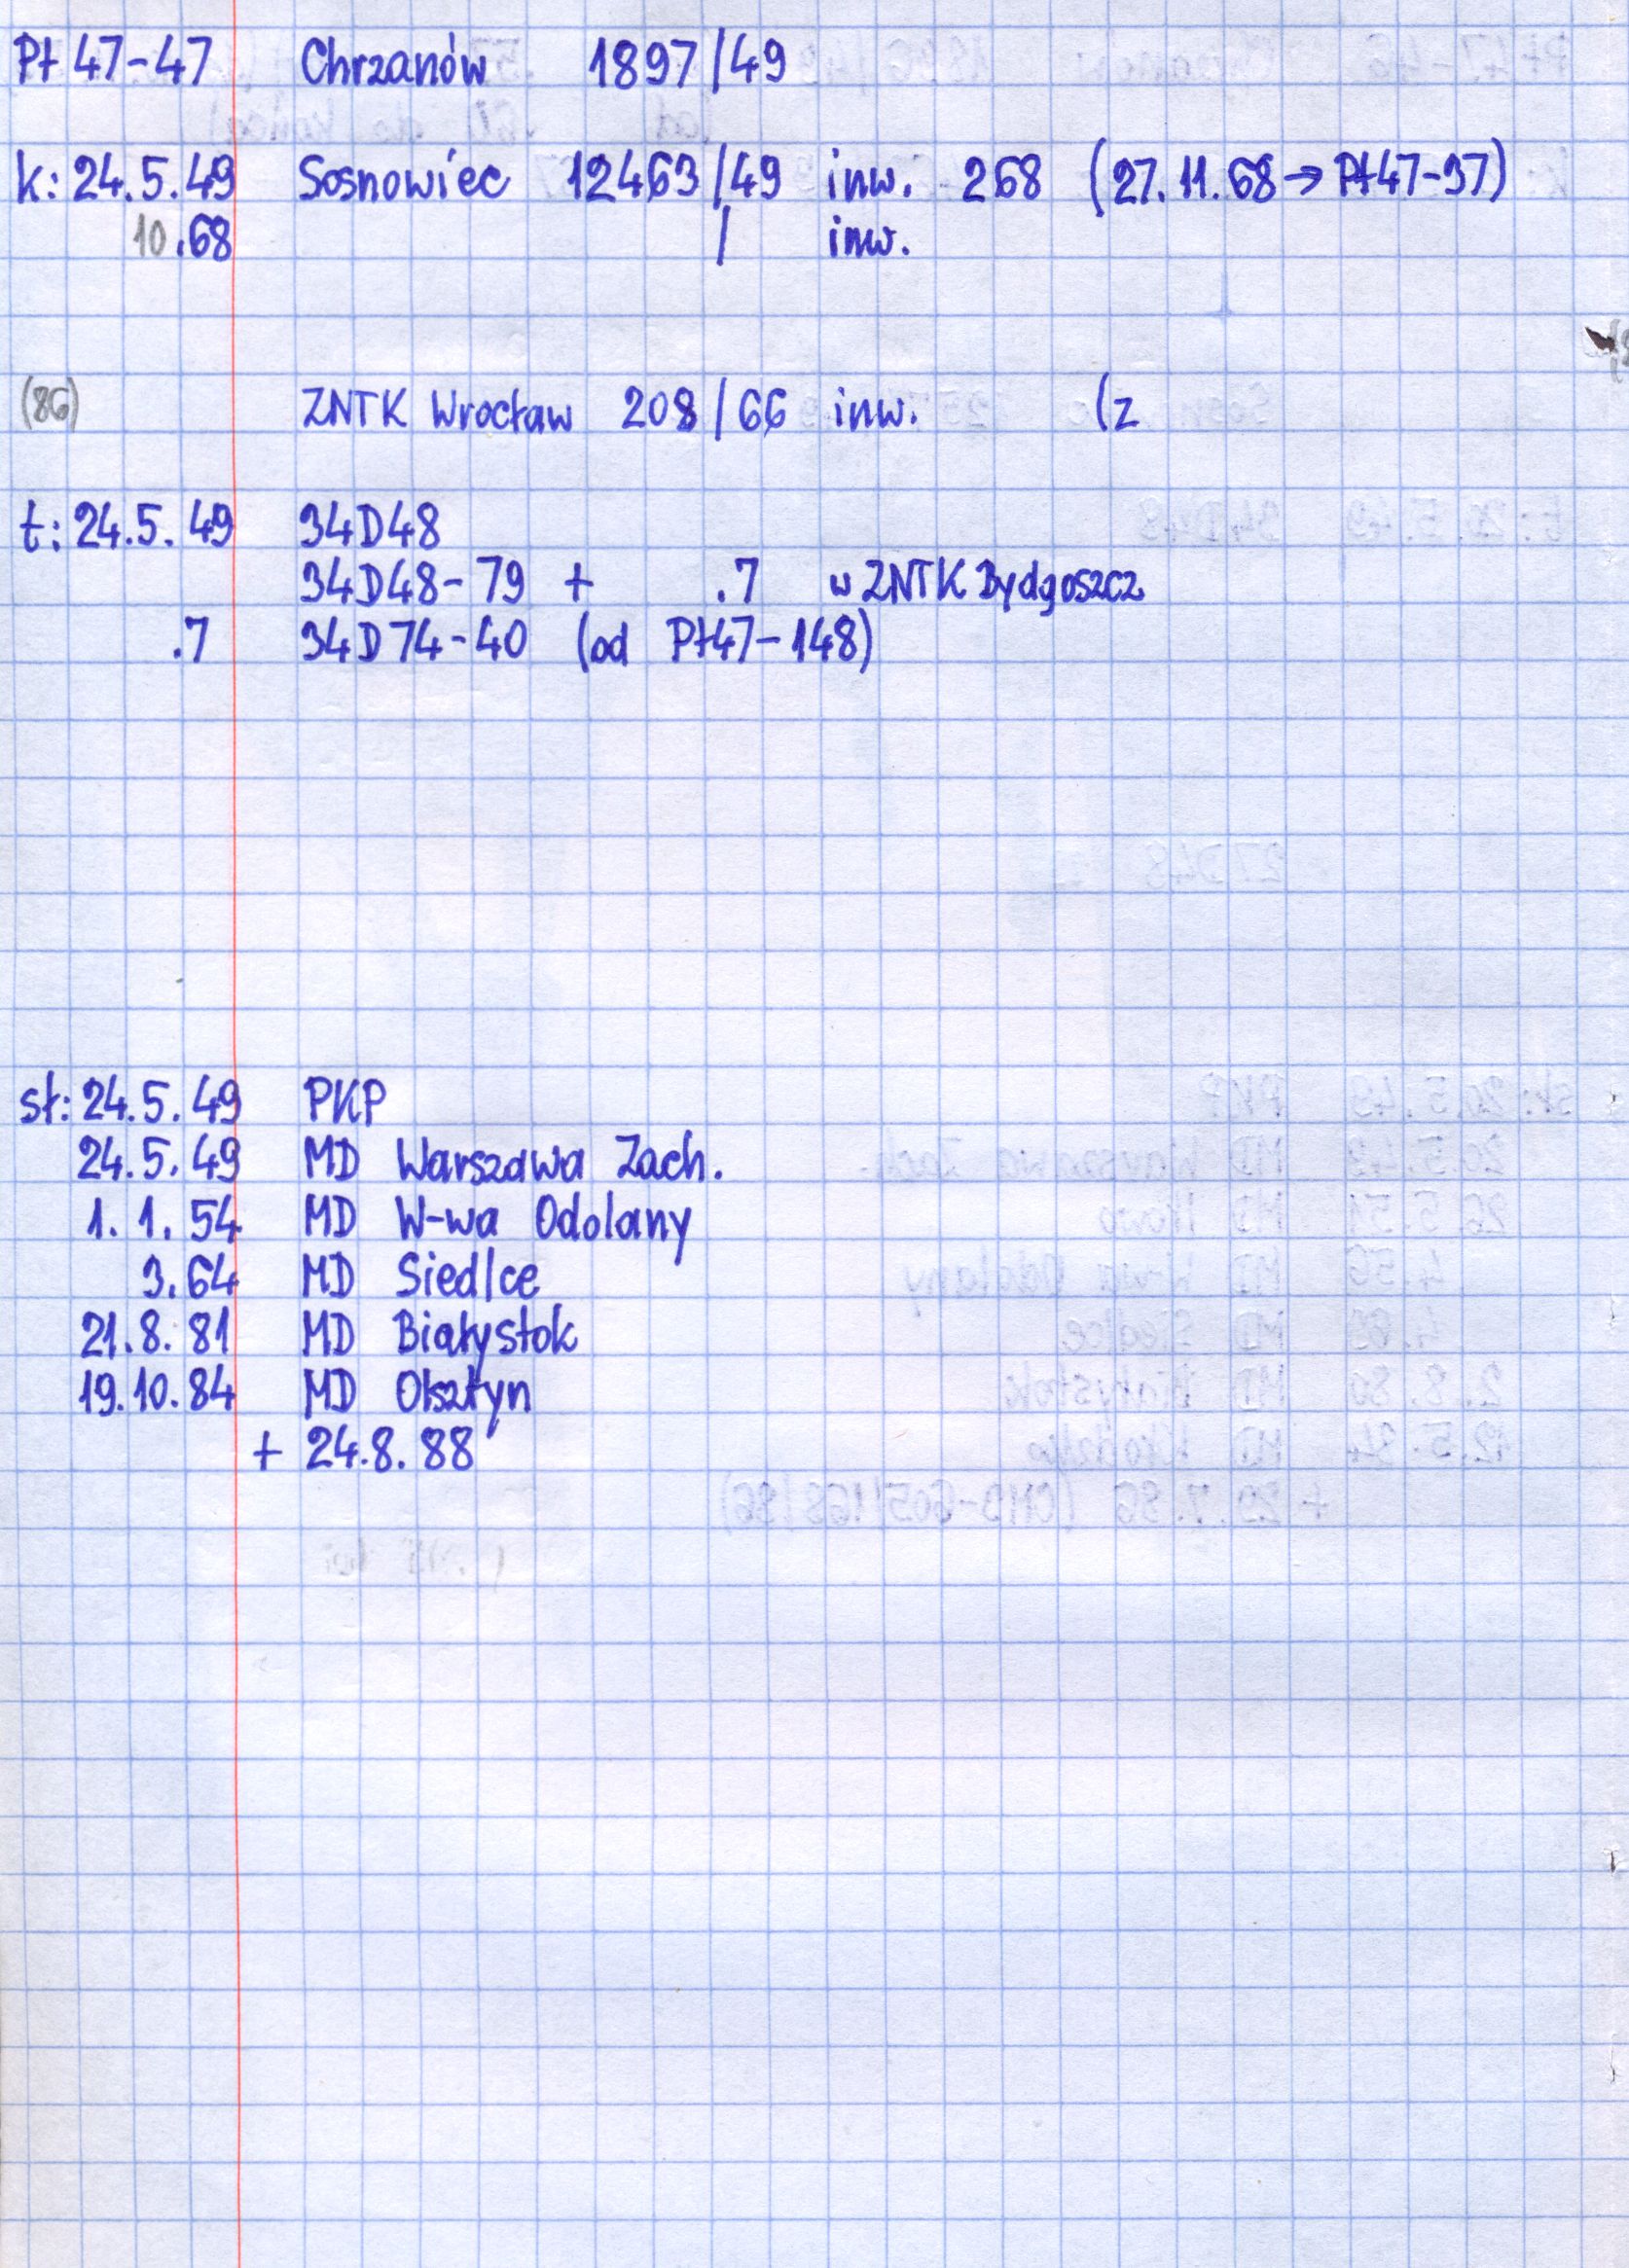 Pt 47-47 Chrzanów 1897/49
k: 24.5.49 Sosnowiec 12463/49 inw. 268 (27.11.68 → Pt47-97)
10.68 / inw.
(86) ZNTK Wrocław 208/66 inw. (z
t: 24.5.49 34D48
34D48-79 + .7 w ZNTK Bydgoszcz
.7 34D74-40 (od Pt47-148)
st: 24.5.49 PKP
24.5.49 MD Warszawa Zach.
1.1.54 MD W-wa Odolany
3.64 MD Siedlce
21.8.81 MD Białystok
19.10.84 MD Olsztyn
+ 24.8.88